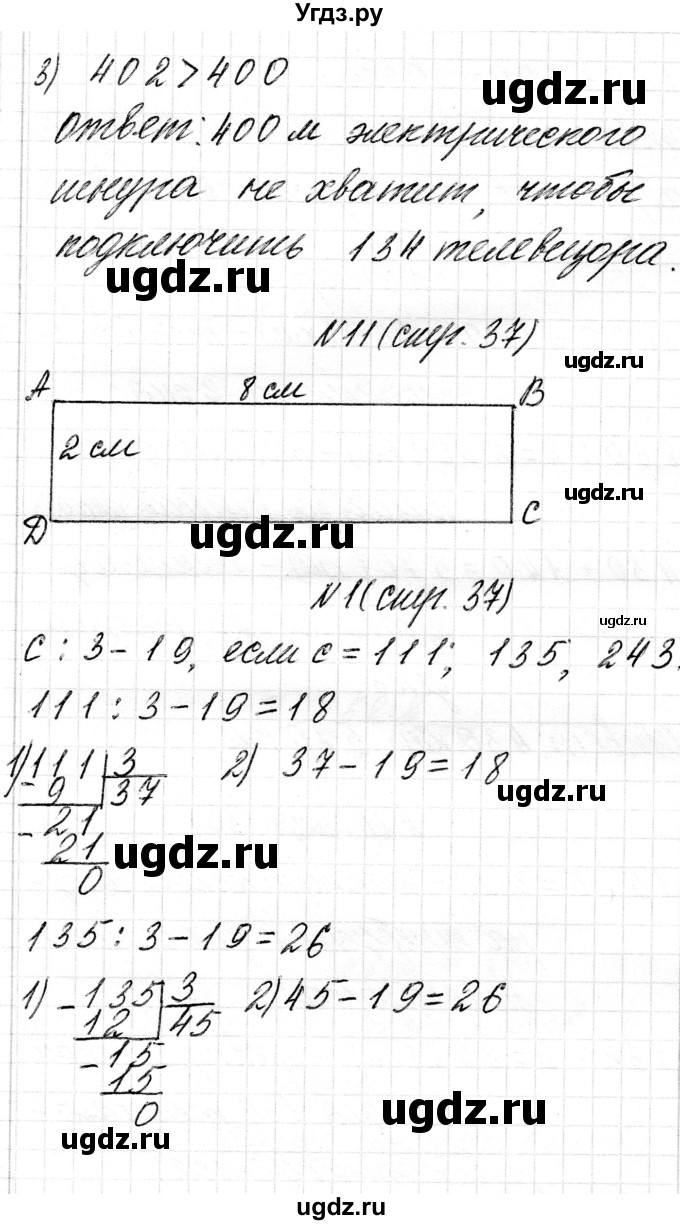 Угдз.ру
3) 402>400
ugdz.ru
ответ: 400 м электрического
шнура не хватит, чтобы
подключить 134 телевизора.
ugdz.ru
ugdz.ru
N11 (стр. 37)
ugdz.ru
A 8 см B
2 см
ugdz.ru
D C
ugdz.ru
N1 (стр. 37)
ugdz.ru
c : 3 - 19, если c = 111; 135; 243.
111 : 3 - 19 = 18
1) 111 3 2) 37 - 19 = 18
- 9 37
ugdz.ru
- 21
21
ugdz.ru
0
135 : 3 - 19 = 26
1) - 135 3 2) 45 - 19 = 26
12 45
- 15
15
0
ugdz.ru
ugdz.ru
ugdz.ru